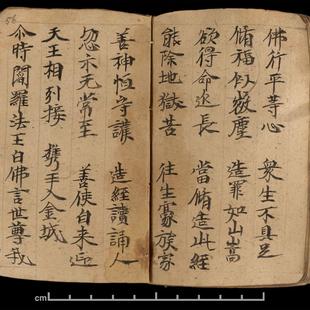 佛行平等心 眾生不具足
脩福似微塵 造罪如山嵩
欲得命延長 當脩造此經
能除地獄苦 往生豪族家
善神恒守護 造經讀誦人
忽尒无常至 善使自來迎
天王相引接 攜手入金城
尒時閻羅法王白佛言世尊我
56
cm